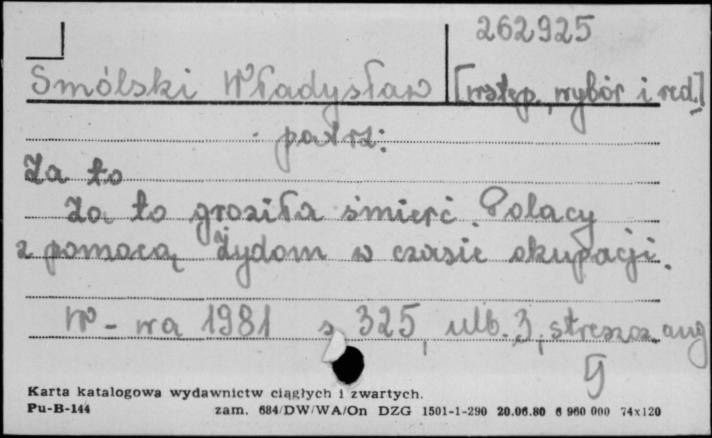 262925
Smólski Władysław [wstęp, wybór i red.]
patrz:
Za to
Za to groziła śmierć. Polacy
z pomocą Żydom w czasie okupacji.
W-wa 1981 s. 325, ulb. 3, streszcz. ang
Karta katalogowa wydawnictw ciągłych i zwartych.
Pu-B-144 zam. 684/DW/WA/On DZG 1501-1-290 20.06.80 6 960 000 74x120